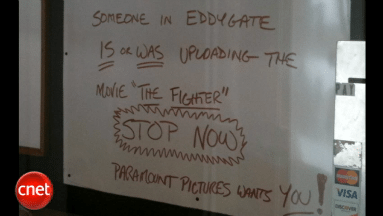 SOMEONE IN EDDYGATE
IS OR WAS UPLOADING THE
MOVIE "THE FIGHTER"
STOP NOW
PARAMOUNT PICTURES WANTS YOU!
cnet
VISA
DISCOVER